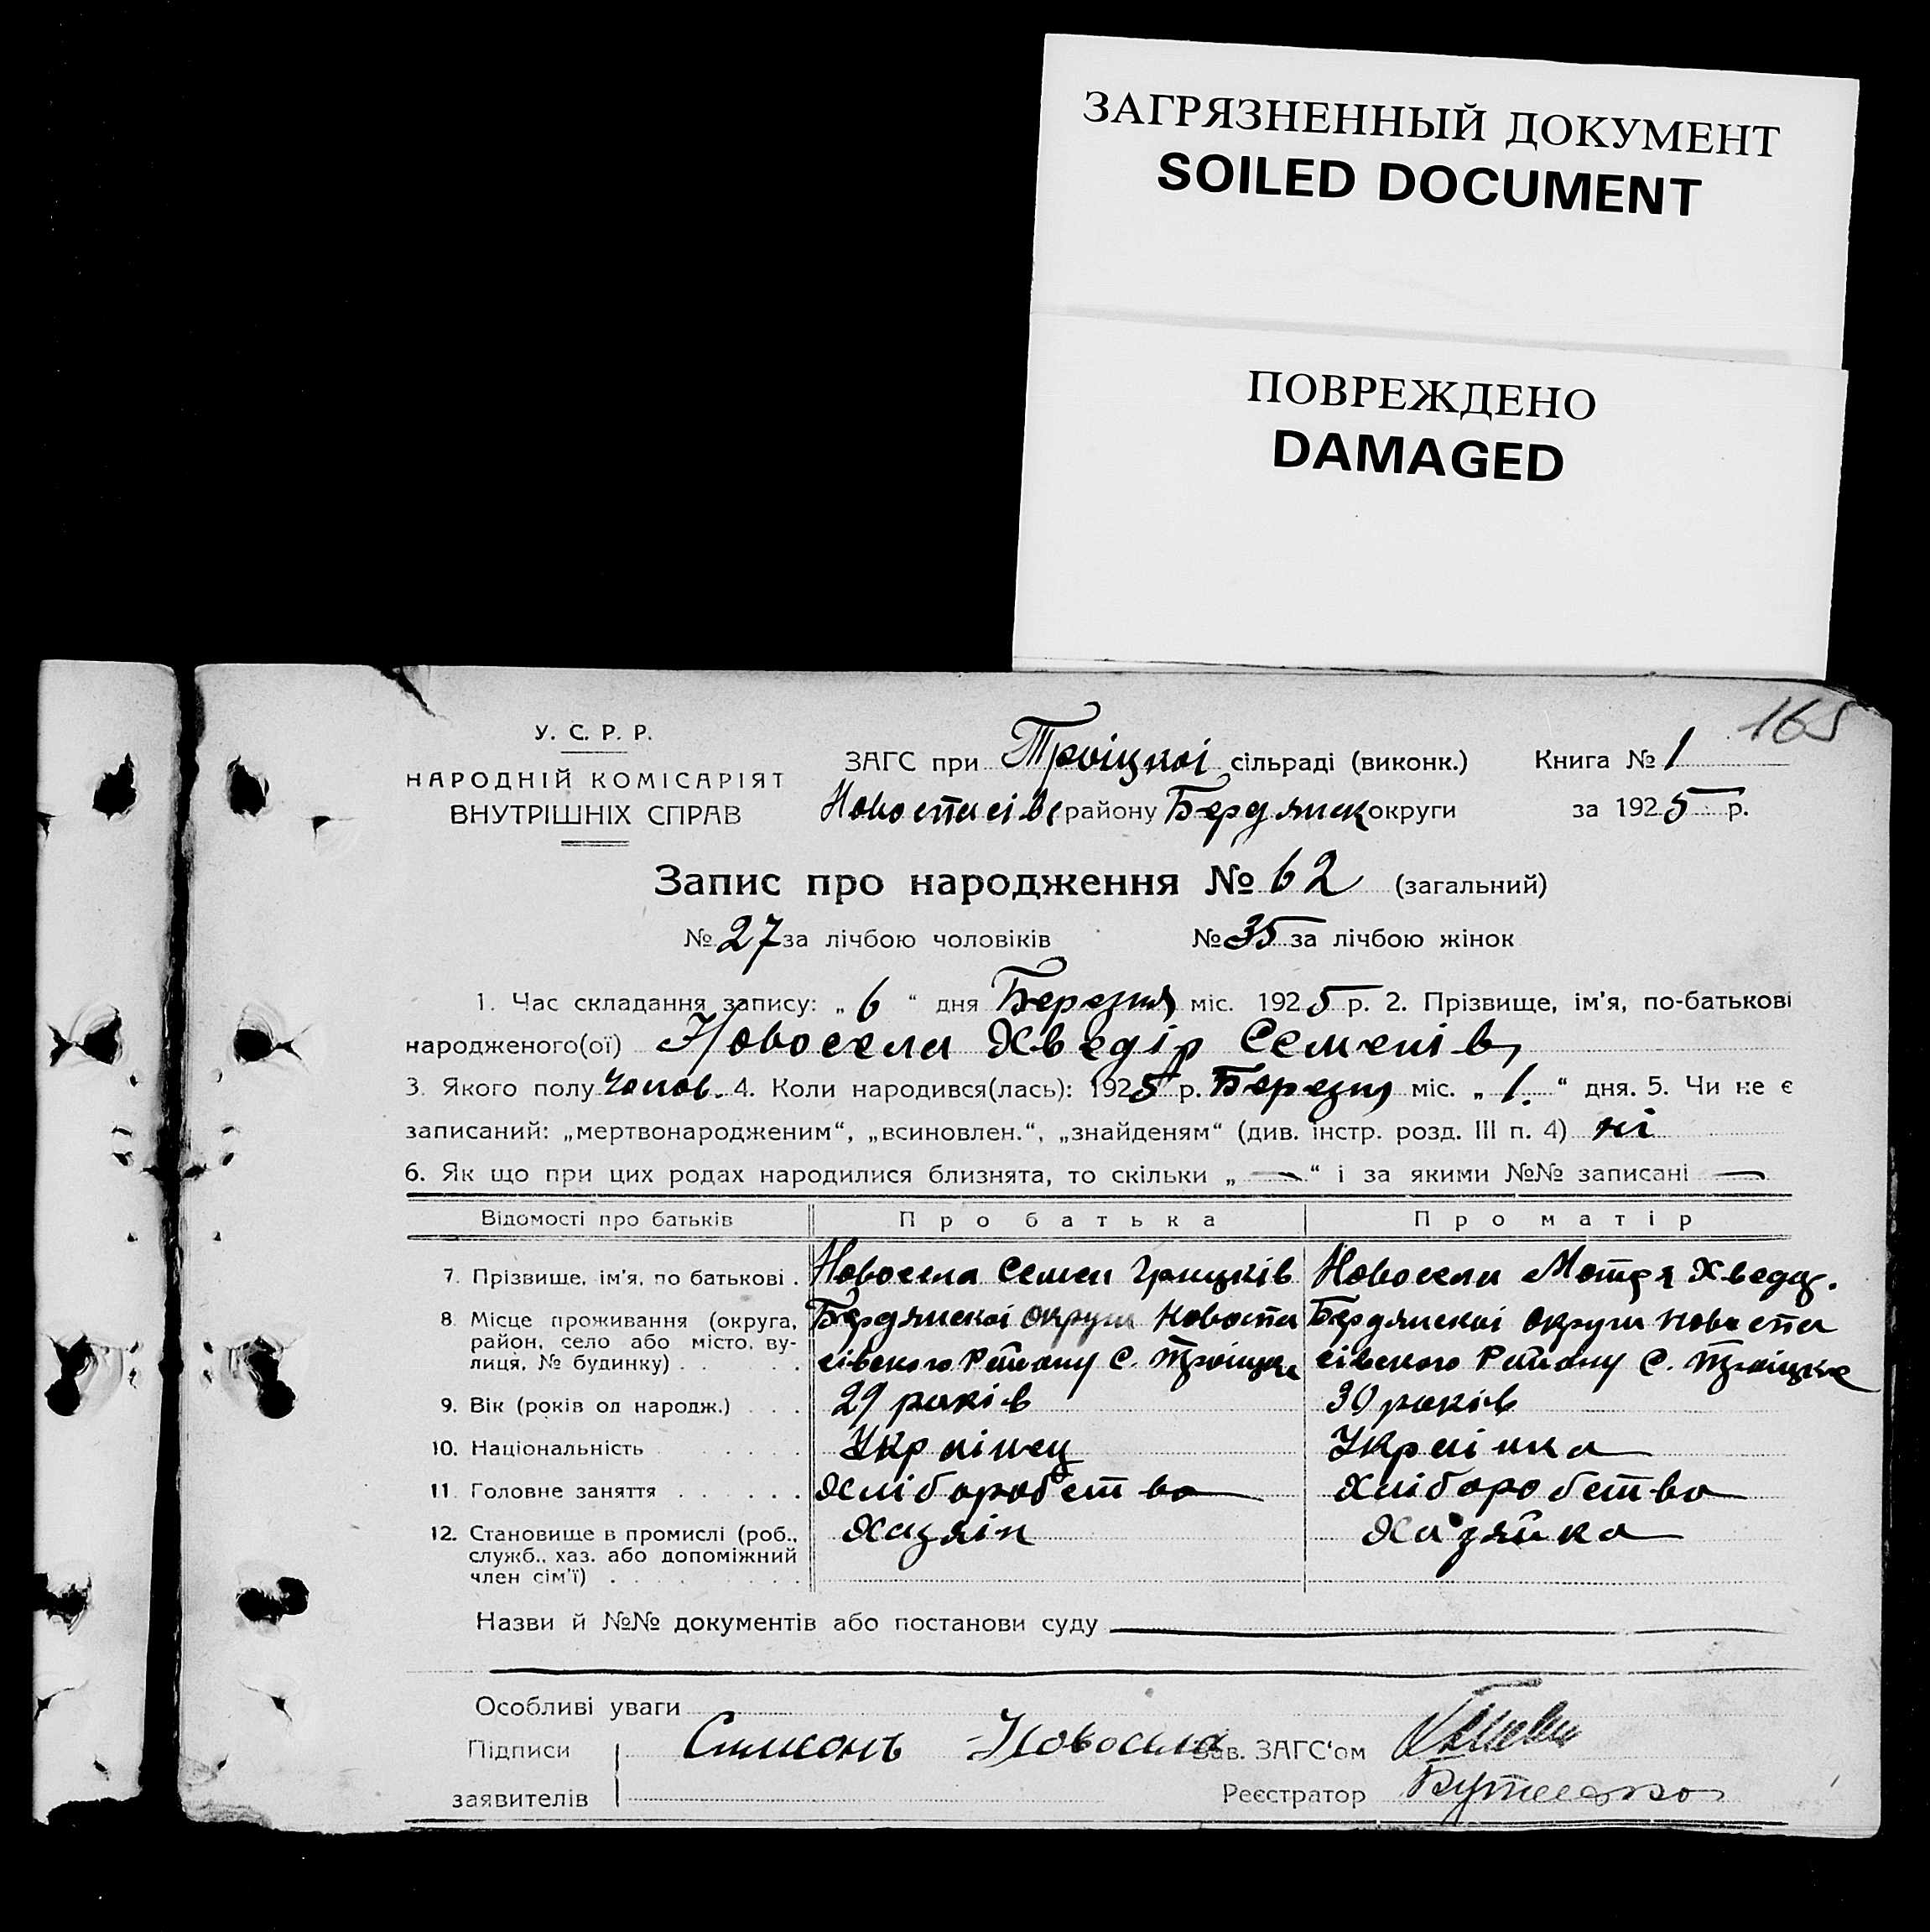 ЗАГРЯЗНЕННЫЙ ДОКУМЕНТ
SOILED DOCUMENT
ПОВРЕЖДЕНО
DAMAGED
165
У. С. Р. Р.
НАРОДНІЙ КОМІСАРІЯТ
ВНУТРІШНІХ СПРАВ
ЗАГС при Троіцкоі сільраді (виконк.) Книга № 1
Новоспасівс району Бердянск округи за 1925 р.
Запис про народження № 62 (загальний)
№ 27 за лічбою чоловіків № 35 за лічбою жінок
1. Час складання запису: „ 6 “ дня Березня міс. 1925 р. 2. Прізвище, ім'я, по-батькові
народженого(ої) Новосела Хведір Семенів
3. Якого полу чолов. 4. Коли народився(лась): 1925 р. Березня міс. „ 1. “ дня. 5. Чи не є
записаний: „мертвонародженим“, „всиновлен.“, „знайденям“ (див. інстр. розд. III п. 4) ні
6. Як що при цих родах народилися близнята, то скільки „ — “ і за якими №№ записані —
Відомості про батьків Про батька Про матір
7. Прізвище, ім'я, по батькові . Новосела Семен Грицків Новосела Мотря Хведц.
8. Місце проживання (округа, Бердянскоі округи Новоспа Бердянскоі округи Новоспа
район, село або місто, ву-
лиця, № будинку) . . . сівского Району С. Троіцке сівского Району С. Троіцке
9. Вік (років од народж.) . . . 29 років 30 років
10. Національність . . . . . Українец Українка
11. Головне заняття . . . . . . Хліборобство Хліборобство
12. Становище в промислі (роб., Хазяін Хазяйка
служб., хаз. або допоміжний
член сім'ї) . . . . . . . .
Назви й №№ документів або постанови суду
Особливі уваги
Підписи Симконъ Новосела Зав. ЗАГС'ом
заявителів Реєстратор